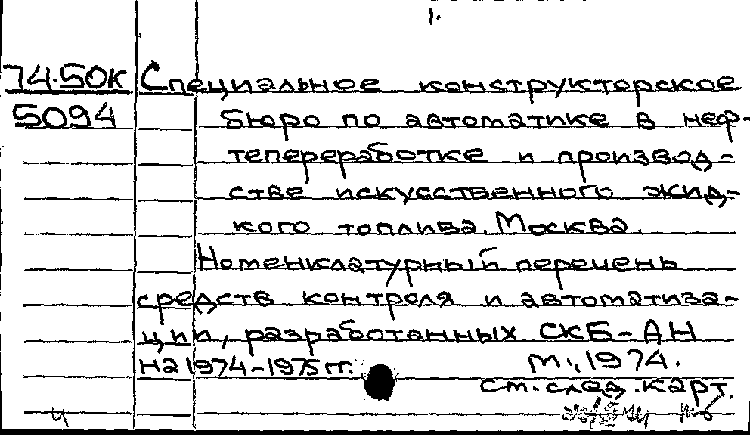 1.
74.50К Специальное конструкторское
5094 бюро по автоматике в неф-
тепереработке и производ-
стве искусственного жид-
кого топлива. Москва.
Номенклатурный перечень
средств контроля и автоматиза-
ции, разработанных СКБ-АН
на 1974-1975 гг. М., 1974.
см. след. карт.